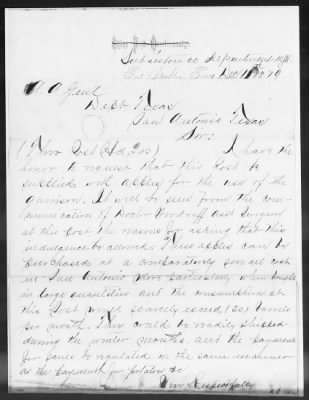 Subsistence Department
Dec 11 1879
A A Genl
Dept Texas
San Antonio Texas
Sir:
(Thro Post Hd Qrs) I have the
honor to request that this Post be
supplied with apples for the use of the
Garrison. It will be seen from the com-
munication of Doctor Woodruff asst Surgeon
at this Post the reasons for asking that this
indulgence be allowed. These apples can be
purchased at a comparatively small cost
in San Antonio Texas particularly when bought
in large quantities and the consumption at
this Post would scarcely exceed (30) barrels
per month. They could be readily shipped
during the winter months, and the payment
for same be regulated in the same manner
as the payment for potatoes &c
Very Respectfully